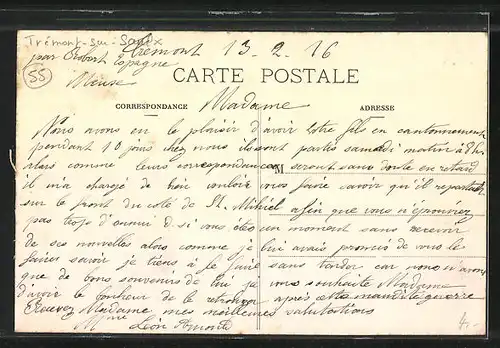 Trémont-sur-Saulx
Trémont 13-2-16
par Robert Espagne
55
Meuse
CARTE POSTALE
CORRESPONDANCE
Madame
ADRESSE
Nous avons eu le plaisir d'avoir votre fils en cantonnement
pendant 10 jours chez nous ils sont partis samedi matin à 8 h.
alors comme leurs correspondances M seront sans doute en retard
il m'a chargé de bien vouloir vous faire savoir qu'il repartait
sur le front du coté de St. Mihiel afin que vous n'éprouviez
pas trop d'ennui si vous etes un moment sans recevoir
de ses nouvelles alors comme je lui avais promis de vous le
faire savoir je tiens à le faire sans tarder car nous n'avons
que de bons souvenirs de lui je vous souhaite Madame
d'avoir le bonheur de le retrouver après cette maudite guerre
Recevez Madame mes meilleures salutations
Mme Léon
4.-